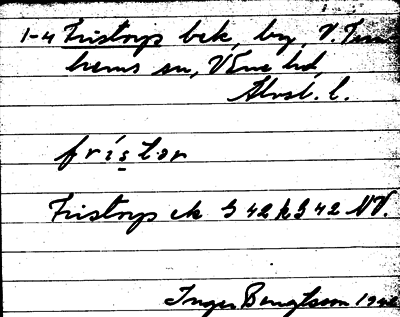 1-4 Fristorp bek, by, V. Tun
hems sn, V Ene hd,
Älvsb. l.
fristor
Fristorp ek 9 42 k 9 42 NV.
Inger Bengtsson 19